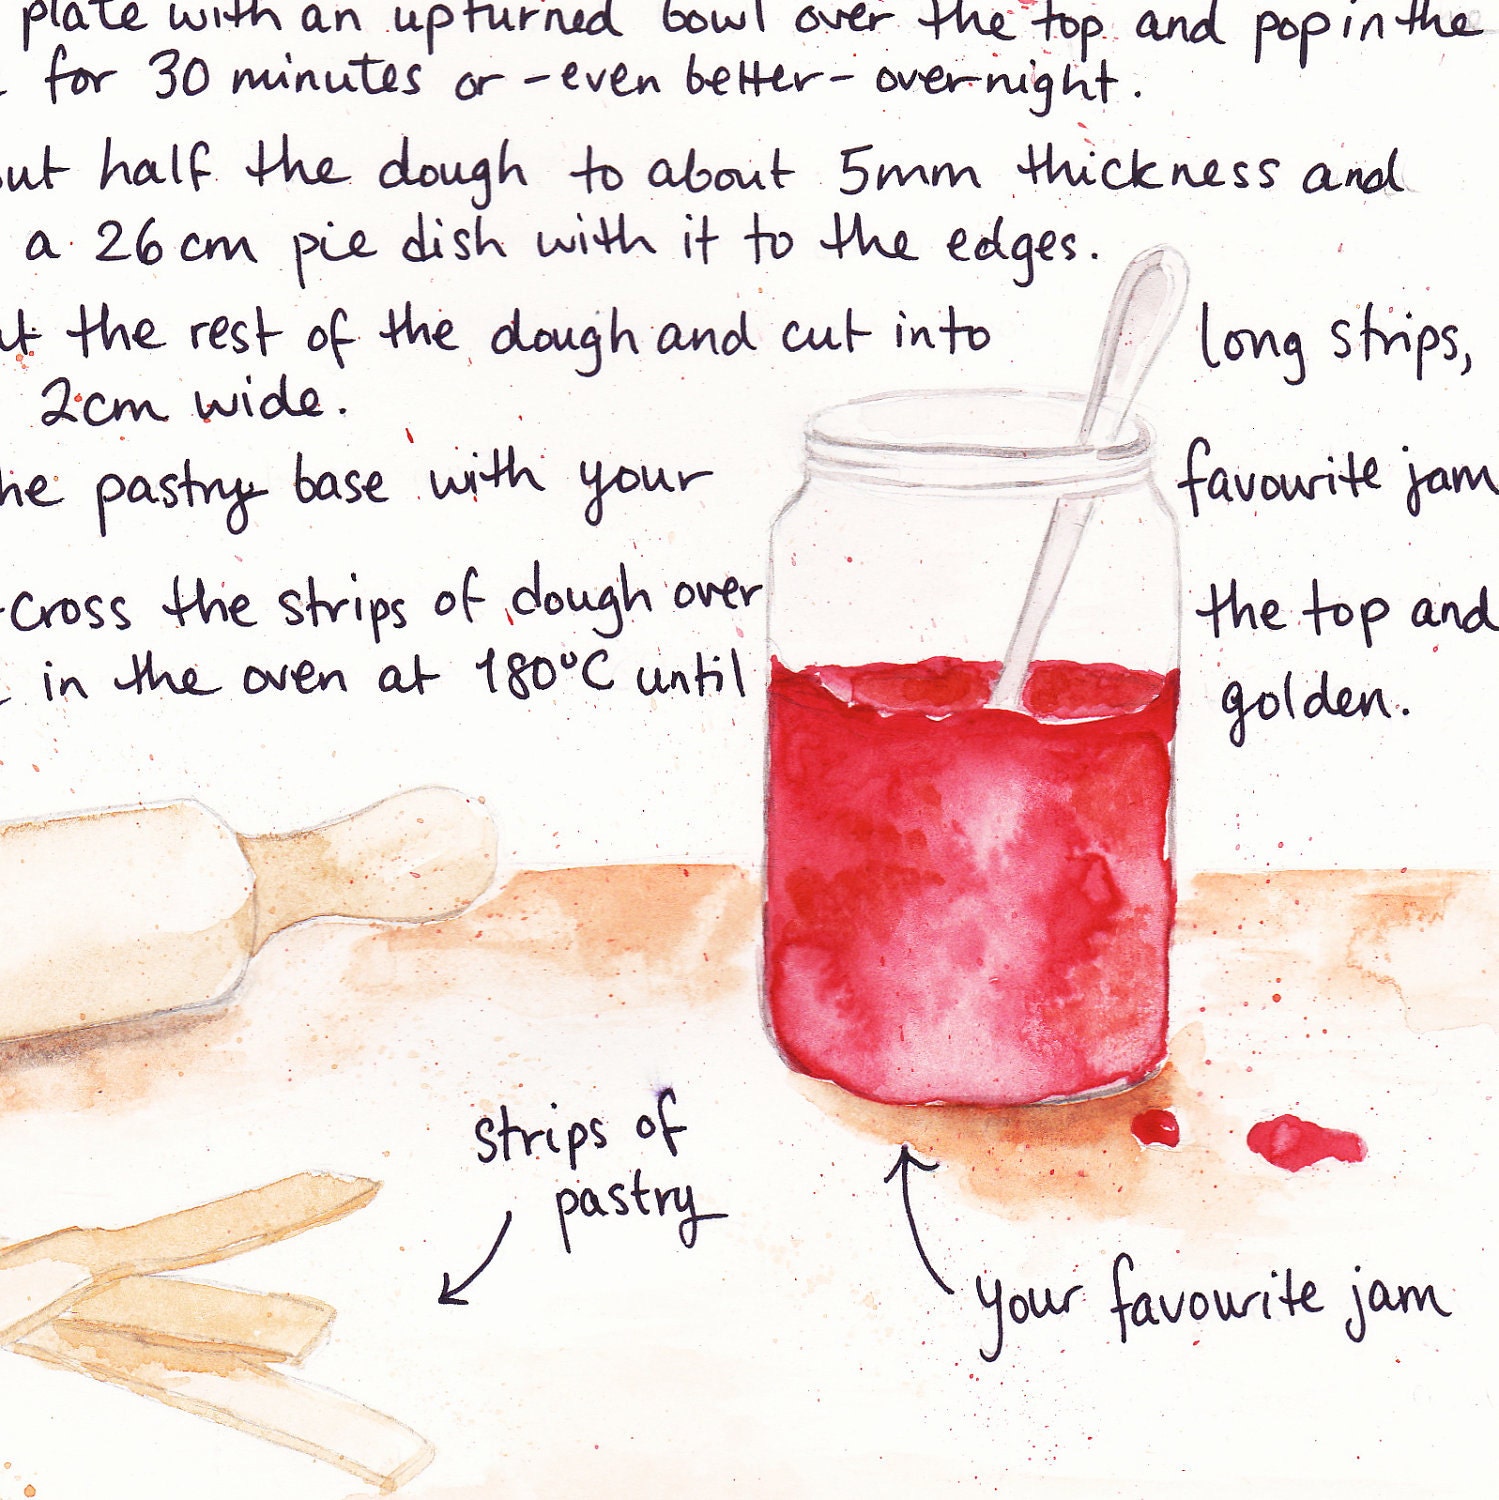 plate with an upturned bowl over the top and pop in the
for 30 minutes or - even better - overnight.
out half the dough to about 5mm thickness and
a 26cm pie dish with it to the edges.
the rest of the dough and cut into long strips,
2cm wide.
the pastry base with your favourite jam
cross the strips of dough over the top and
in the oven at 180°C until golden.
strips of
pastry
your favourite jam